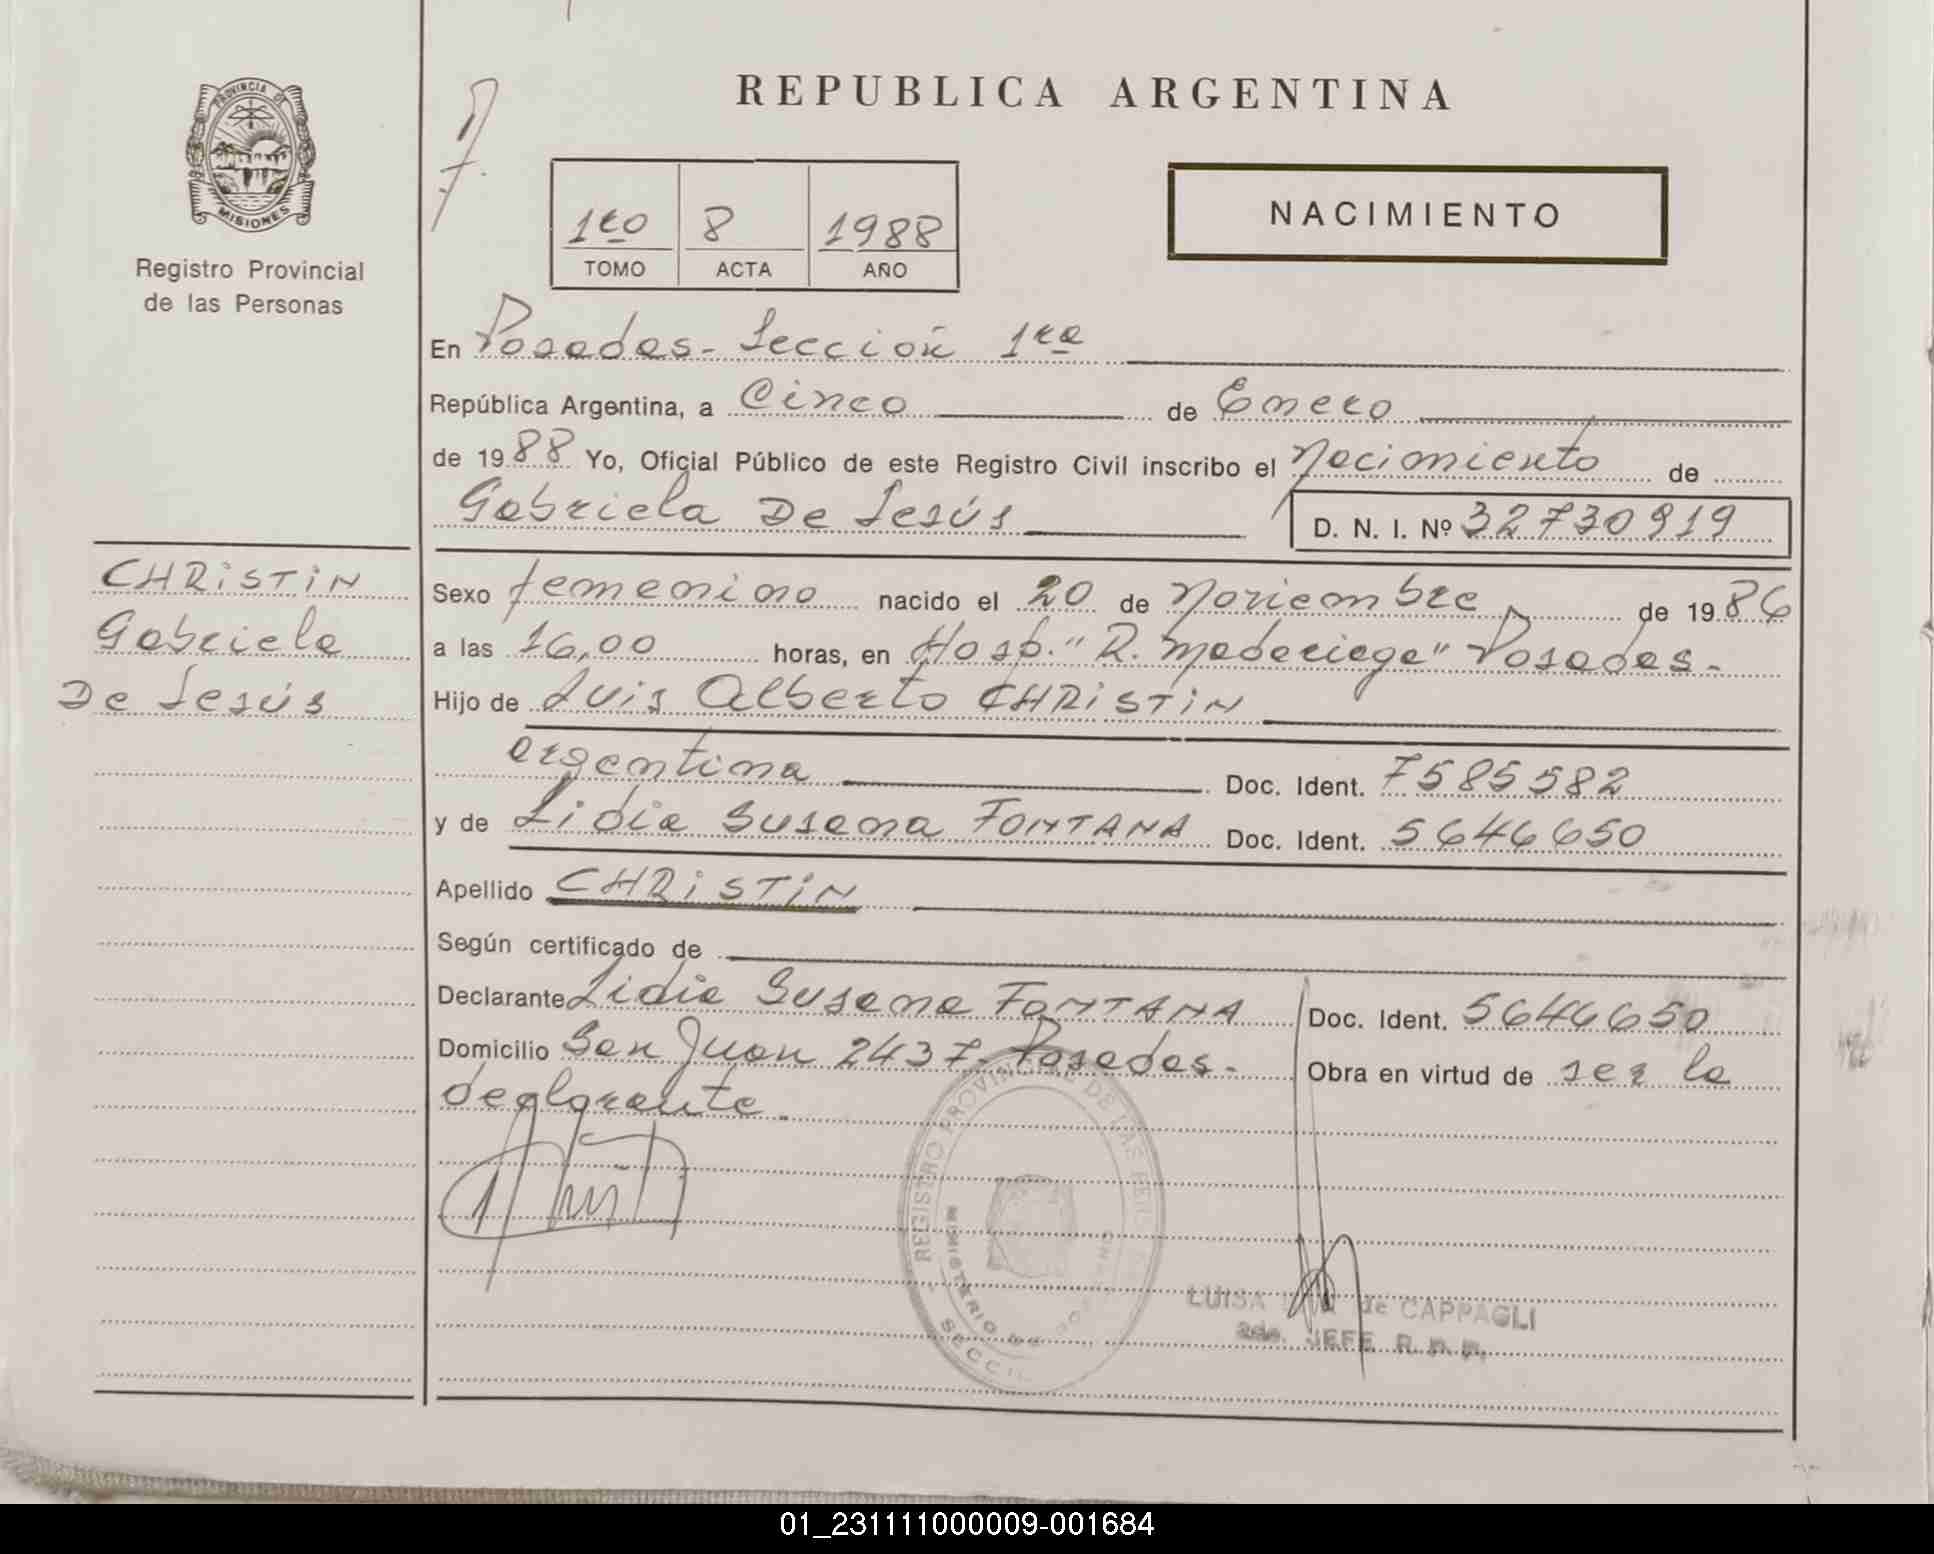 PROVINCIA DE
MISIONES
Registro Provincial
de las Personas
CHRiSTiN
Gabriela
De Jesús
REPUBLICA ARGENTINA
1ro 8 1988
TOMO ACTA AÑO
NACIMIENTO
En Posadas - Sección 1ra
República Argentina, a Cinco de Enero
de 1988 Yo, Oficial Público de este Registro Civil inscribo el Nacimiento de
Gabriela De Jesús D. N. I. Nº 32730919
Sexo femenino nacido el 20 de Noviembre de 1986
a las 16,00 horas, en Hosp. "R. Madariaga" Posadas-
Hijo de Luis Alberto CHRiSTiN
argentina Doc. Ident. 7585582
y de Lidia Susana FONTANA Doc. Ident. 5646650
Apellido CHRiSTiN
Según certificado de
Declarante Lidia Susana FONTANA Doc. Ident. 5646650
Domicilio San Juan 2437- Posadas- Obra en virtud de ser la
declarante.
REGISTRO PROVINCIAL DE LAS
MINISTERIO DE
SECCI
LUISA de CAPPAGLI
2do. JEFE R. P. P.
01_231111000009-001684